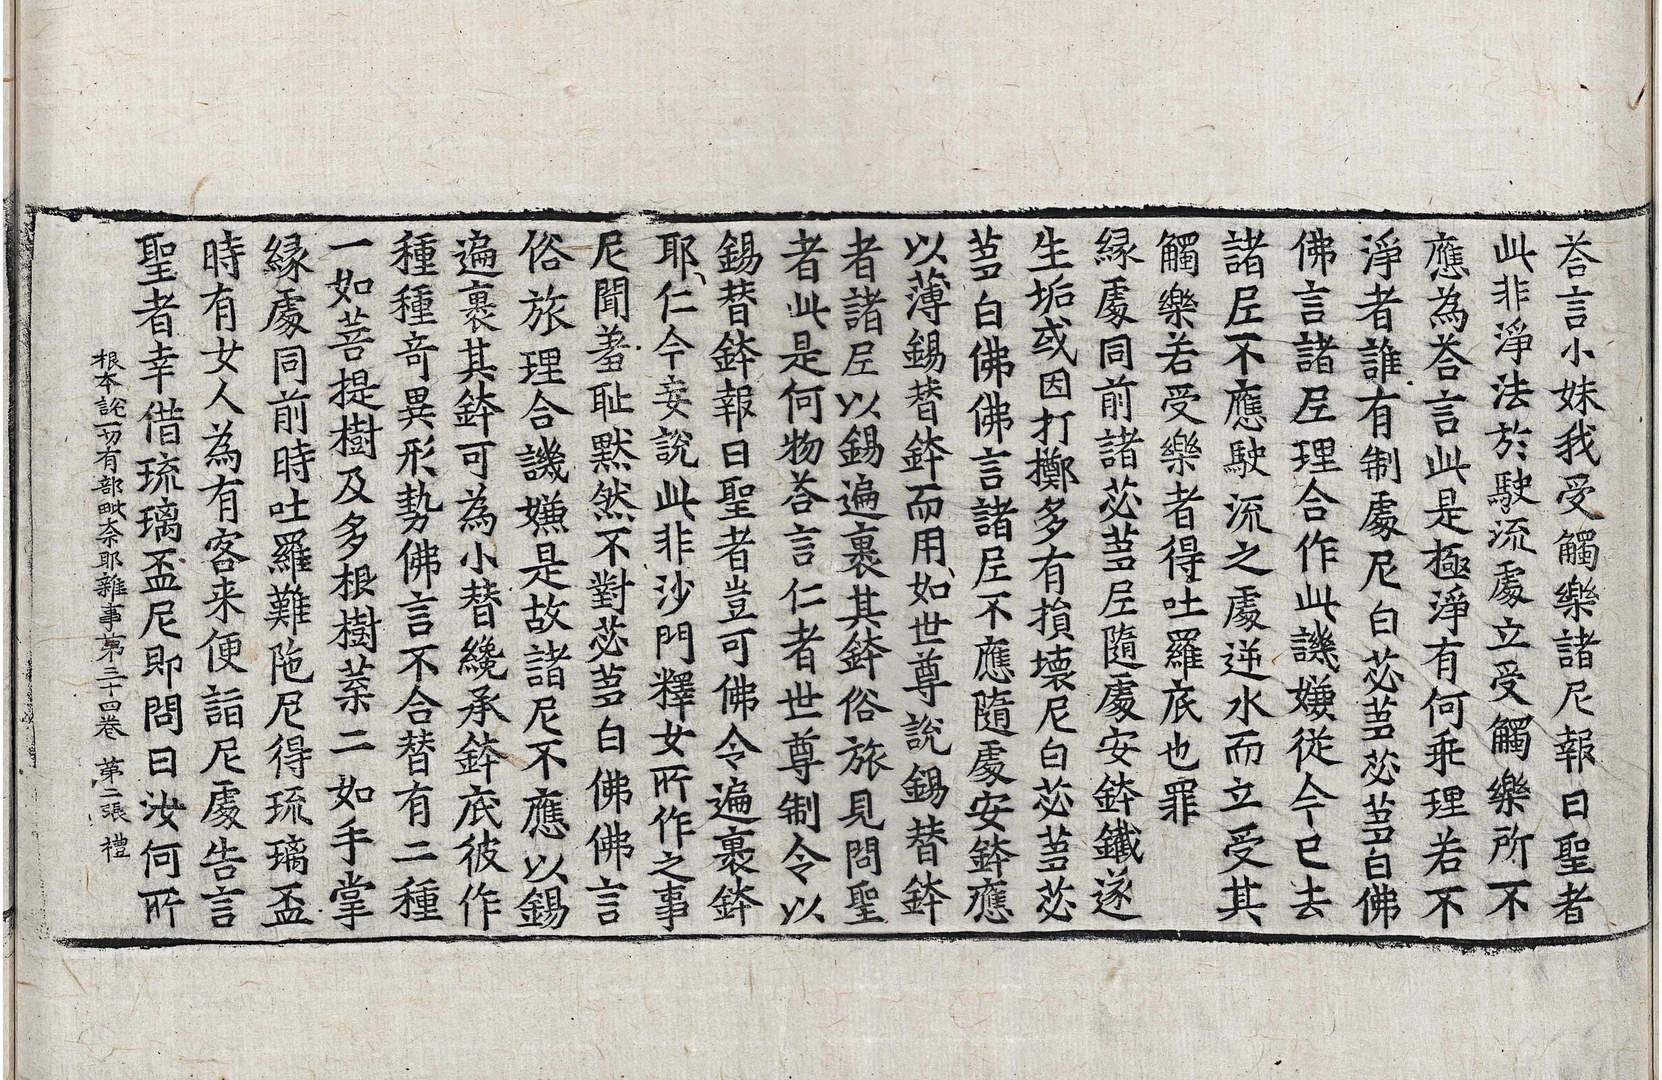 荅言小妹我受觸樂諸尼報曰聖者
此非淨法於駛流處立受觸樂所不
應為荅言此是極淨有何乖理若不
淨者誰有制處尼白苾芻苾芻白佛
佛言諸尼理合作此譏嫌從今已去
諸尼不應駛流之處逆水而立受其
觸樂若受樂者得吐羅底也罪
緣處同前諸苾芻尼隨處安鉢鐵遂
生垢或因打擲多有損壞尼白苾芻苾
芻白佛佛言諸尼不應隨處安鉢應
以薄錫替鉢而用如世尊說錫替鉢
者諸尼以錫遍裹其鉢俗旅見問聖
者此是何物荅言仁者世尊制令以
錫替鉢報曰聖者豈可佛令遍裹鉢
耶仁今妄說此非沙門釋女所作之事
尼聞羞恥默然不對苾芻白佛佛言
俗旅理合譏嫌是故諸尼不應以錫
遍裹其鉢可為小替纔承鉢底彼作
種種奇異形勢佛言不合替有二種
一如菩提樹及多根樹葉二如手掌
緣處同前時吐羅難陁尼得琉璃盃
時有女人為有客来便詣尼處告言
聖者幸借琉璃盃尼即問曰汝何所
根本說一切有部毗奈耶雜事第三十四卷 第二張 禮